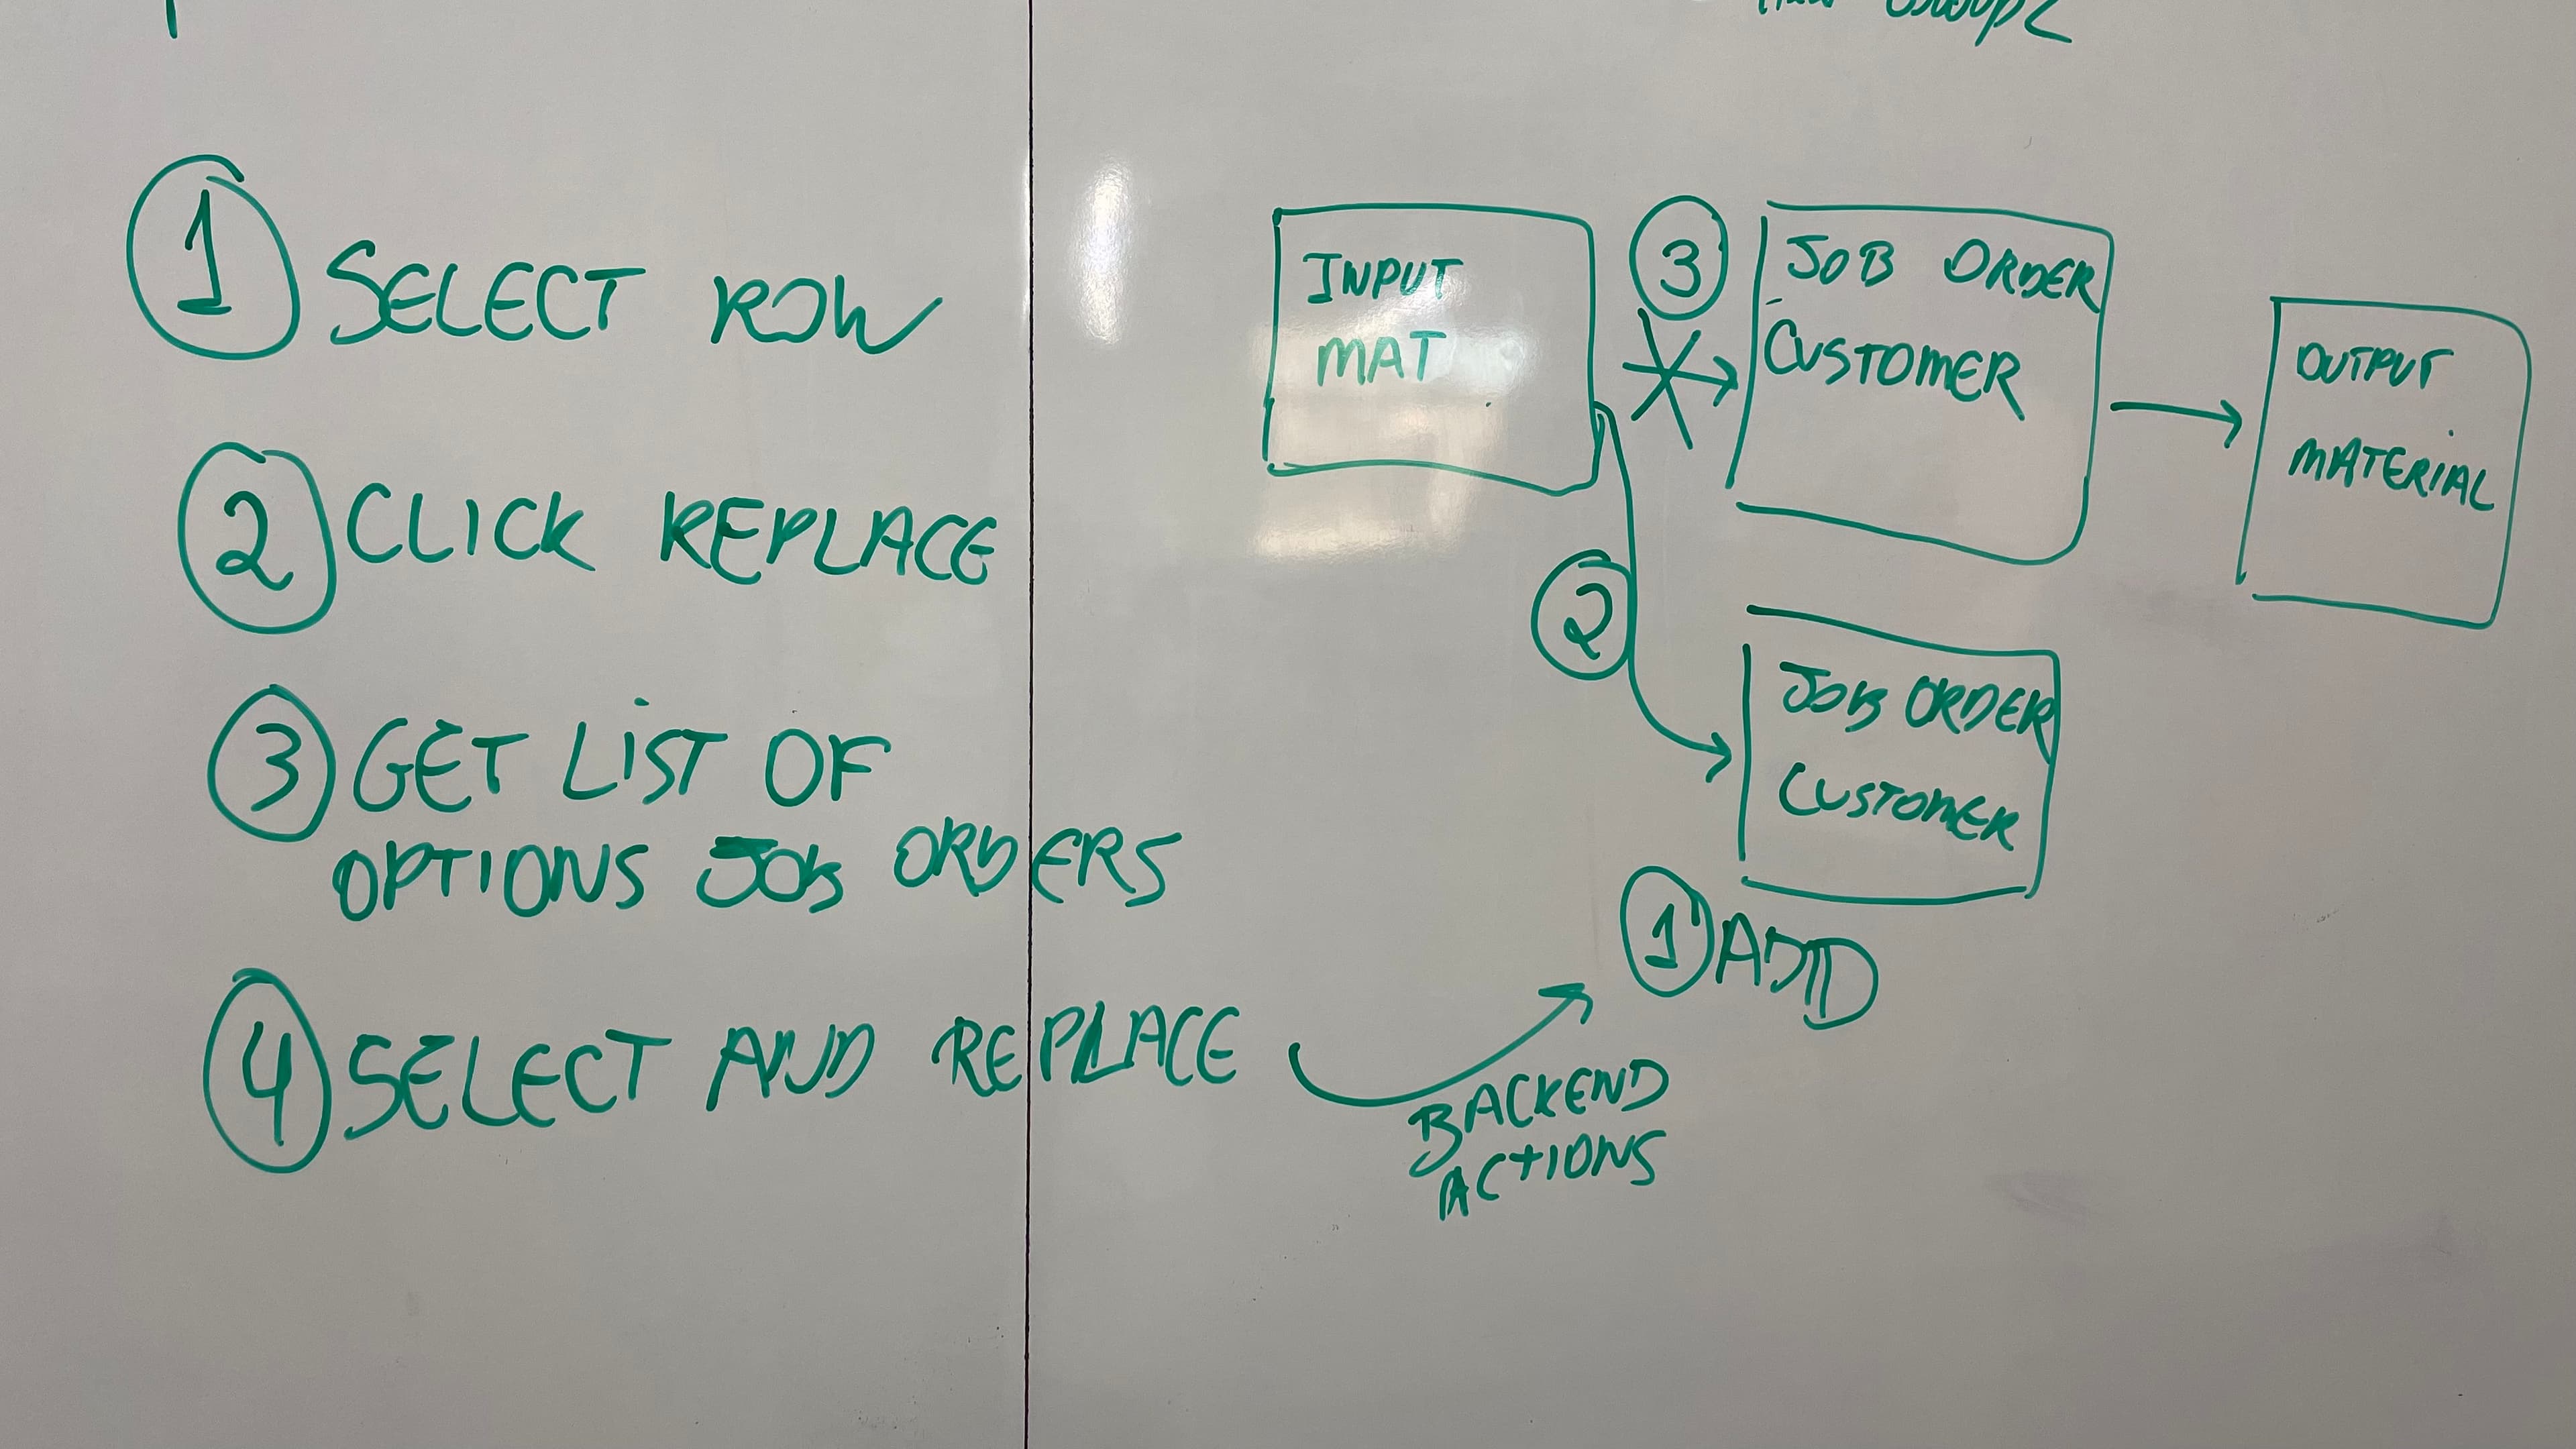 1 SELECT ROW
2 CLICK REPLACE
3 GET LIST OF
OPTIONS JOB ORDERS
4 SELECT AND REPLACE
BACKEND
ACTIONS
INPUT
MAT
3
JOB ORDER
CUSTOMER
OUTPUT
MATERIAL
2
JOB ORDER
CUSTOMER
1 ADD